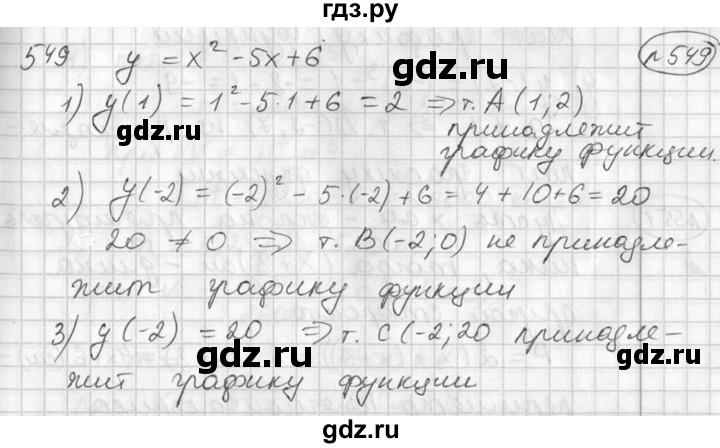 гдз.ру
549 y = x² - 5x + 6
n 549
1) y(1) = 1² - 5·1 + 6 = 2 ⇒ т. A (1; 2)
принадлежит
графику функции.
2) y(-2) = (-2)² - 5·(-2) + 6 = 4 + 10 + 6 = 20
20 ≠ 0 ⇒ т. B(-2; 0) не принадле-
жит графику функции
3) y(-2) = 20 ⇒ т. C(-2; 20 принадле-
жит графику функции
гдз.ру